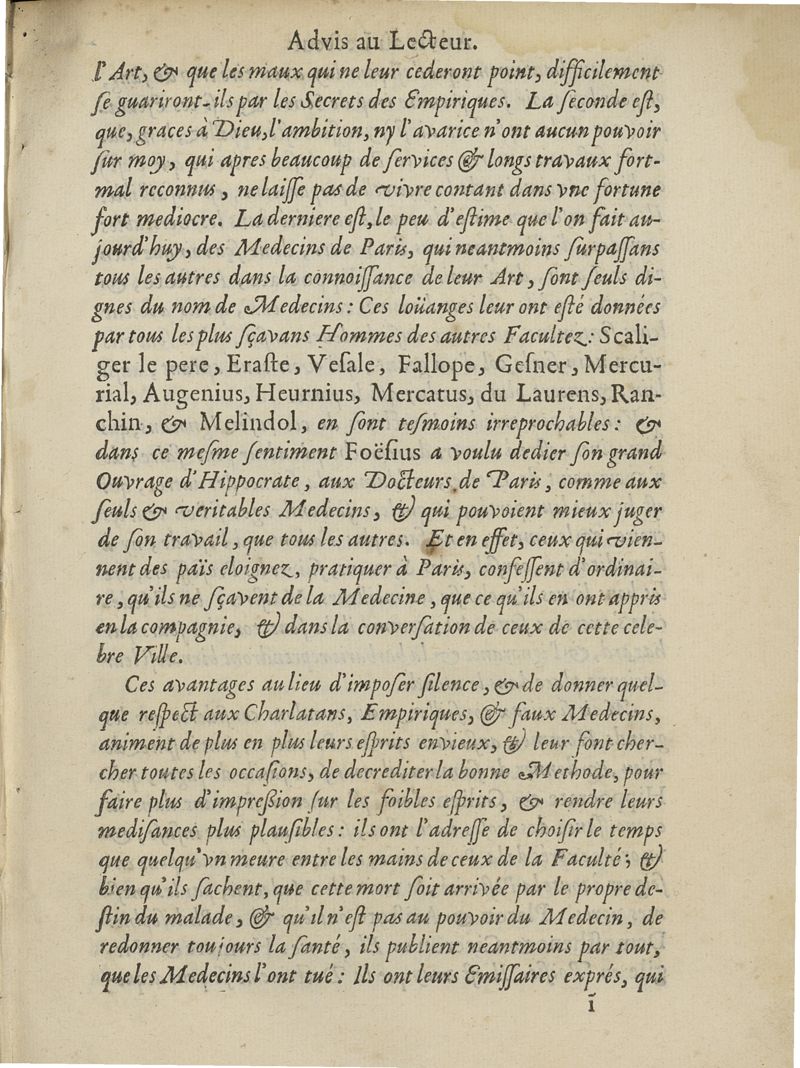 Advis au Lecteur.
l'Art, & que les maux qui ne leur cederont point, difficilement
ſe guariront-ils par les Secrets des Empiriques. La ſeconde eſt,
que, graces à Dieu, l'ambition, ny l'avarice n'ont aucun pouvoir
ſur moy, qui apres beaucoup de ſervices & longs travaux fort-
mal reconnus, ne laiſſe pas de vivre contant dans vne fortune
fort mediocre. La derniere eſt, le peu d'eſtime que l'on fait au-
jourd'huy, des Medecins de Paris, qui neantmoins ſurpaſſans
tous les autres dans la connoiſſance de leur Art, ſont ſeuls di-
gnes du nom de Medecins: Ces loüanges leur ont eſté données
par tous les plus ſçavans Hommes des autres Facultez: Scali-
ger le pere, Eraſte, Veſale, Fallope, Geſner, Mercu-
rial, Augenius, Heurnius, Mercatus, du Laurens, Ran-
chin, & Melindol, en ſont teſmoins irreprochables: &
dans ce meſme ſentiment Foëſius a voulu dedier ſon grand
Ouvrage d'Hippocrate, aux Docteurs de Paris, comme aux
ſeuls & veritables Medecins, & qui pouvoient mieux juger
de ſon travail, que tous les autres. Et en effet, ceux qui vien-
nent des païs eloignez, pratiquer à Paris, confeſſent d'ordinai-
re, qu'ils ne ſçavent de la Medecine, que ce qu'ils en ont appris
en la compagnie, & dans la converſation de ceux de cette cele-
bre Ville.
Ces avantages au lieu d'impoſer ſilence, & de donner quel-
que reſpect aux Charlatans, Empiriques, & faux Medecins,
animent de plus en plus leurs eſprits envieux, & leur font cher-
cher toutes les occaſions, de decrediter la bonne Methode, pour
faire plus d'impreßion ſur les foibles eſprits, & rendre leurs
mediſances plus plauſibles: ils ont l'adreſſe de choiſir le temps
que quelqu'vn meure entre les mains de ceux de la Faculté; &
bien qu'ils ſachent, que cette mort ſoit arrivée par le propre de-
ſtin du malade, & qu'il n'eſt pas au pouvoir du Medecin, de
redonner toujours la ſanté, ils publient neantmoins par tout,
que les Medecins l'ont tué: Ils ont leurs Emiſſaires exprés, qui
ī